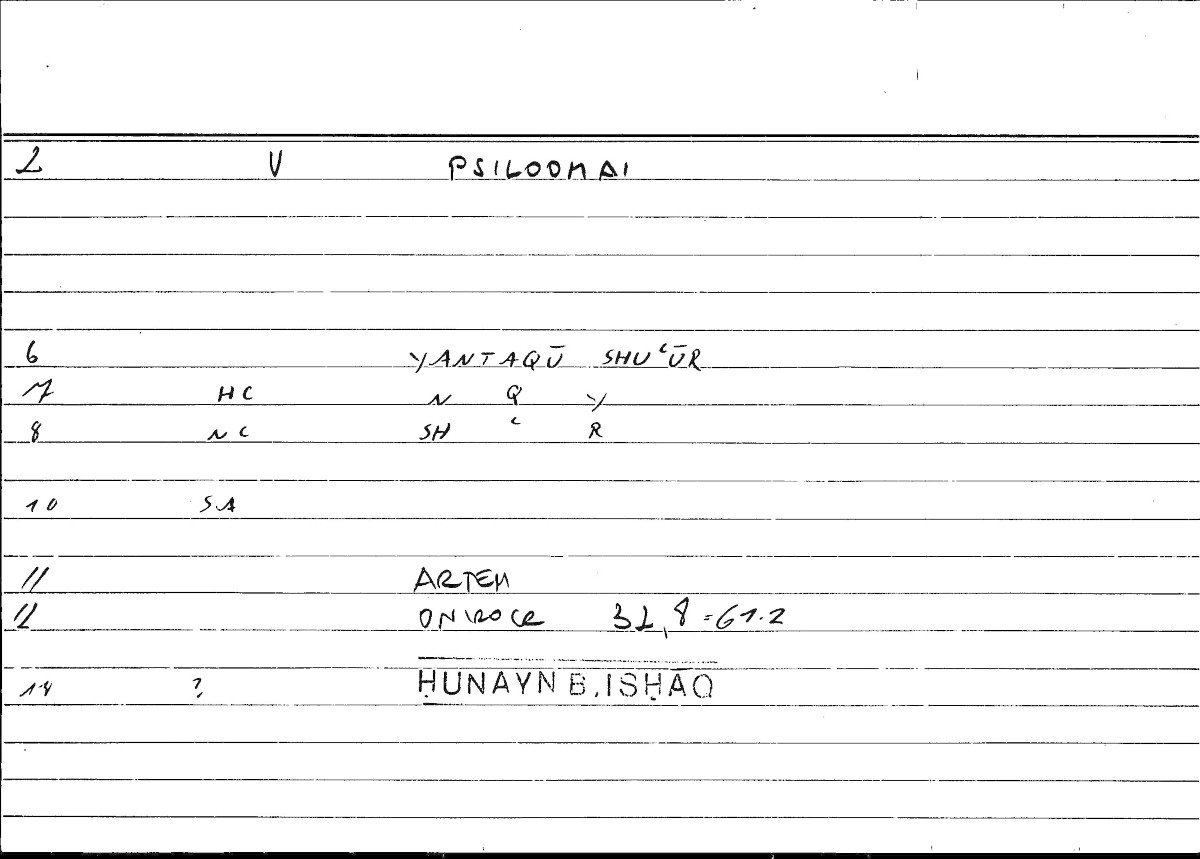 2 V PSILOOMAI
6 YANTAQŪ SHUʿŪR
7 HC N Q Y
8 NC SH ʿ R
10 SA
11 ARTEM
12 ONIROCR 32,8=61.2
14 ? ḤUNAYN B. ISḤĀQ